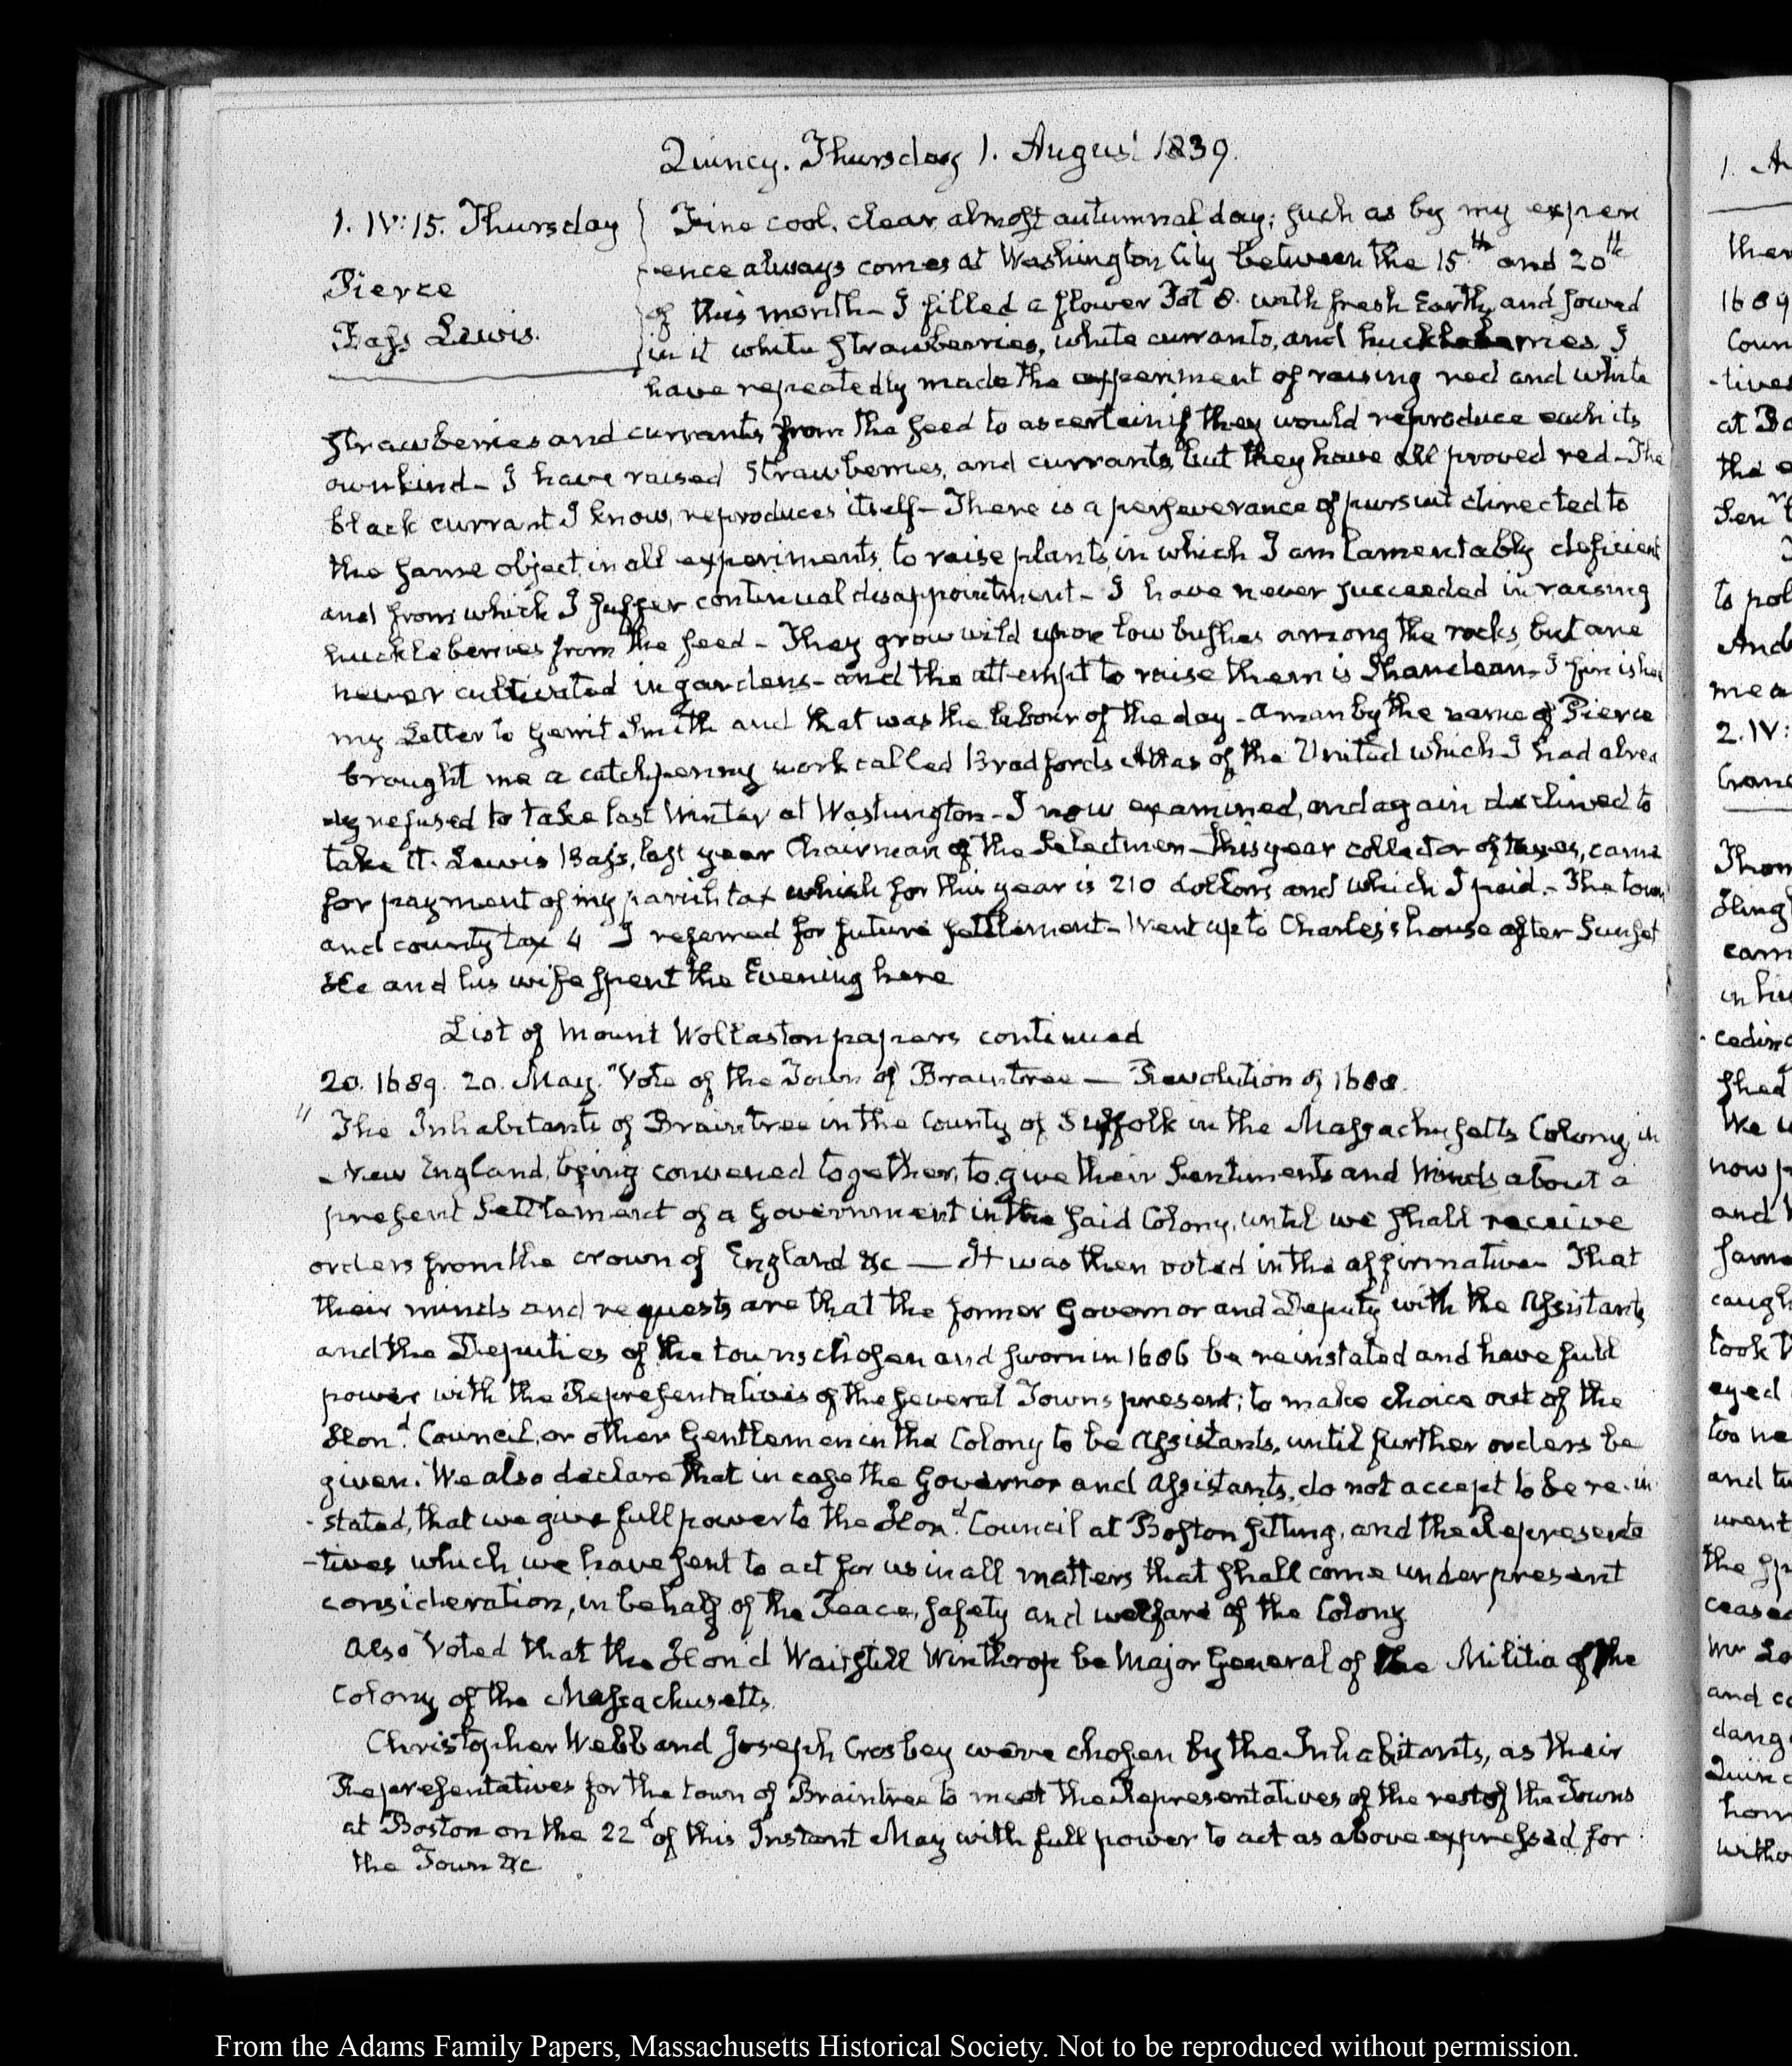 Quincy. Thursday 1. August 1839.
1. IV:15. Thursday
Pierce
Bass Lewis.
Fine cool, clear, almost autumnal day; such as by my experi
-ence always comes at Washington City between the 15th and 20th
of this month— I filled a flower Pot 8. with fresh Earth, and sowed
in it white strawberries, white currants, and huckleberries I
have repeatedly made the experiment of raising red and white
strawberries and currants, from the seed to ascertain if they would reproduce each its
own kind— I have raised strawberries, and currants, but they have all proved red— The
black currant I know, reproduces itself— There is a perseverance of pursuit directed to
the same object, in all experiments, to raise plants, in which I am lamentably deficient
and from which I suffer continual disappointment— I have never succeeded in raising
huckleberries from the seed— They grow wild upon low bushes among the rocks, but are
never cultivated in gardens— and the attempt to raise them is Shandean— I finished
my Letter to Gerrit Smith and that was the labour of the day— A man by the name of Pierce
brought me a catchpenny work called Bradfords Atlas of the United which I had alrea
dy refused to take last Winter at Washington— I now examined, and again declined to
take it. Lewis Bass, last year Chairman of the Selectmen— this year collector of taxes, came
for payment of my parish tax which for this year is 210 dollars and which I paid.— The town
and county tax 4 I referred for future settlement— Went up to Charles's house after Sunset
He and his wife spent the Evening here
List of Mount Wollaston papers continued
20. 1689. 20. May. "Vote of the Town of Braintree — Revolution of 1688.
" The Inhabitants of Braintree in the County of Suffolk in the Massachusetts Colony, in
New England, being convened together, to give their Sentiments and Minds about a
present Settlement of a Government in the said Colony, until we shall receive
orders from the crown of England &c — It was then voted in the affirmative— That
their minds and requests are that the former Governor and Deputy with the Assistants
and the Deputies of the towns chosen and sworn in 1686 be reinstated and have full
power with the Representatives of the several Towns present; to make choice out of the
Hond. Council, or other Gentlemen in the Colony to be Assistants, until further orders be
given. We also declare that in case the Governor and Assistants, do not accept to be re-in
-stated, that we give full power to the Hond. Council at Boston sitting, and the Representa
-tives which we have sent to act for us in all matters that shall come under present
consideration, in behalf of the Peace, safety and welfare of the Colony
Also Voted that the Hon'd Waitstill Winthrop be Major General of the Militia of the
Colony of the Massachusetts.
Christopher Webb and Joseph Crosbey were chosen by the Inhabitants, as their
Representatives for the town of Braintree to meet the Representatives of the rest of the Towns
at Boston on the 22d of this Instant May with full power to act as above expressed for
the Town &c
From the Adams Family Papers, Massachusetts Historical Society. Not to be reproduced without permission.